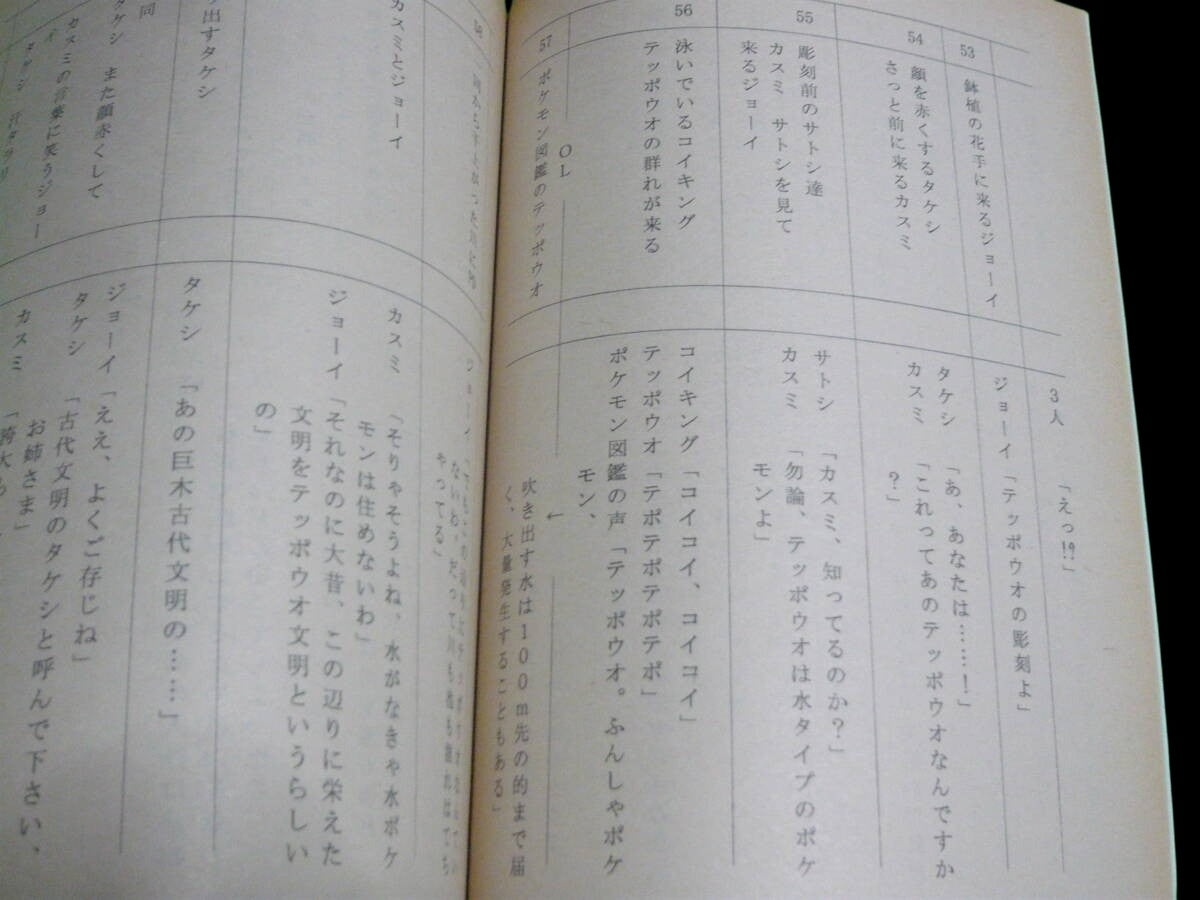 53
鉢植の花手に来るジョーイ
54
顔を赤くするタケシ
さっと前に来るカスミ
55
彫刻前のサトシ達
カスミ サトシを見て
来るジョーイ
56
泳いでいるコイキング
テッポウオの群れが来る
OL
57
ポケモン図鑑のテッポウオ
3人 「えっ!?」
ジョーイ「テッポウオの彫刻よ」
タケシ 「あ、あなたは……!」
カスミ 「これってあのテッポウオなんですか
?」
サトシ 「カスミ、知ってるのか?」
カスミ 「勿論、テッポウオは水タイプのポケ
モンよ」
コイキング「コイコイ、コイコイ」
テッポウオ「テポテポテポテポ」
ポケモン図鑑の声「テッポウオ。ふんしゃポケ
モン、
←
吹き出す水は100m先の的まで届
く、大量発生することもある」
58
カスミとジョーイ
出すタケシ
タケシ また顔赤くして
同
カスミの言葉に笑うジョー
イ
ないわ、だって川も池も
やってる」
カスミ 「そりゃそうよね、水がなきゃ水ポケ
モンは住めないわ」
ジョーイ「それなのに大昔、この辺りに栄えた
文明をテッポウオ文明というらしい
の」
タケシ 「あの巨木古代文明の……」
ジョーイ「ええ、よくご存じね」
タケシ 「古代文明のタケシと呼んで下さい、
お姉さま」
カスミ